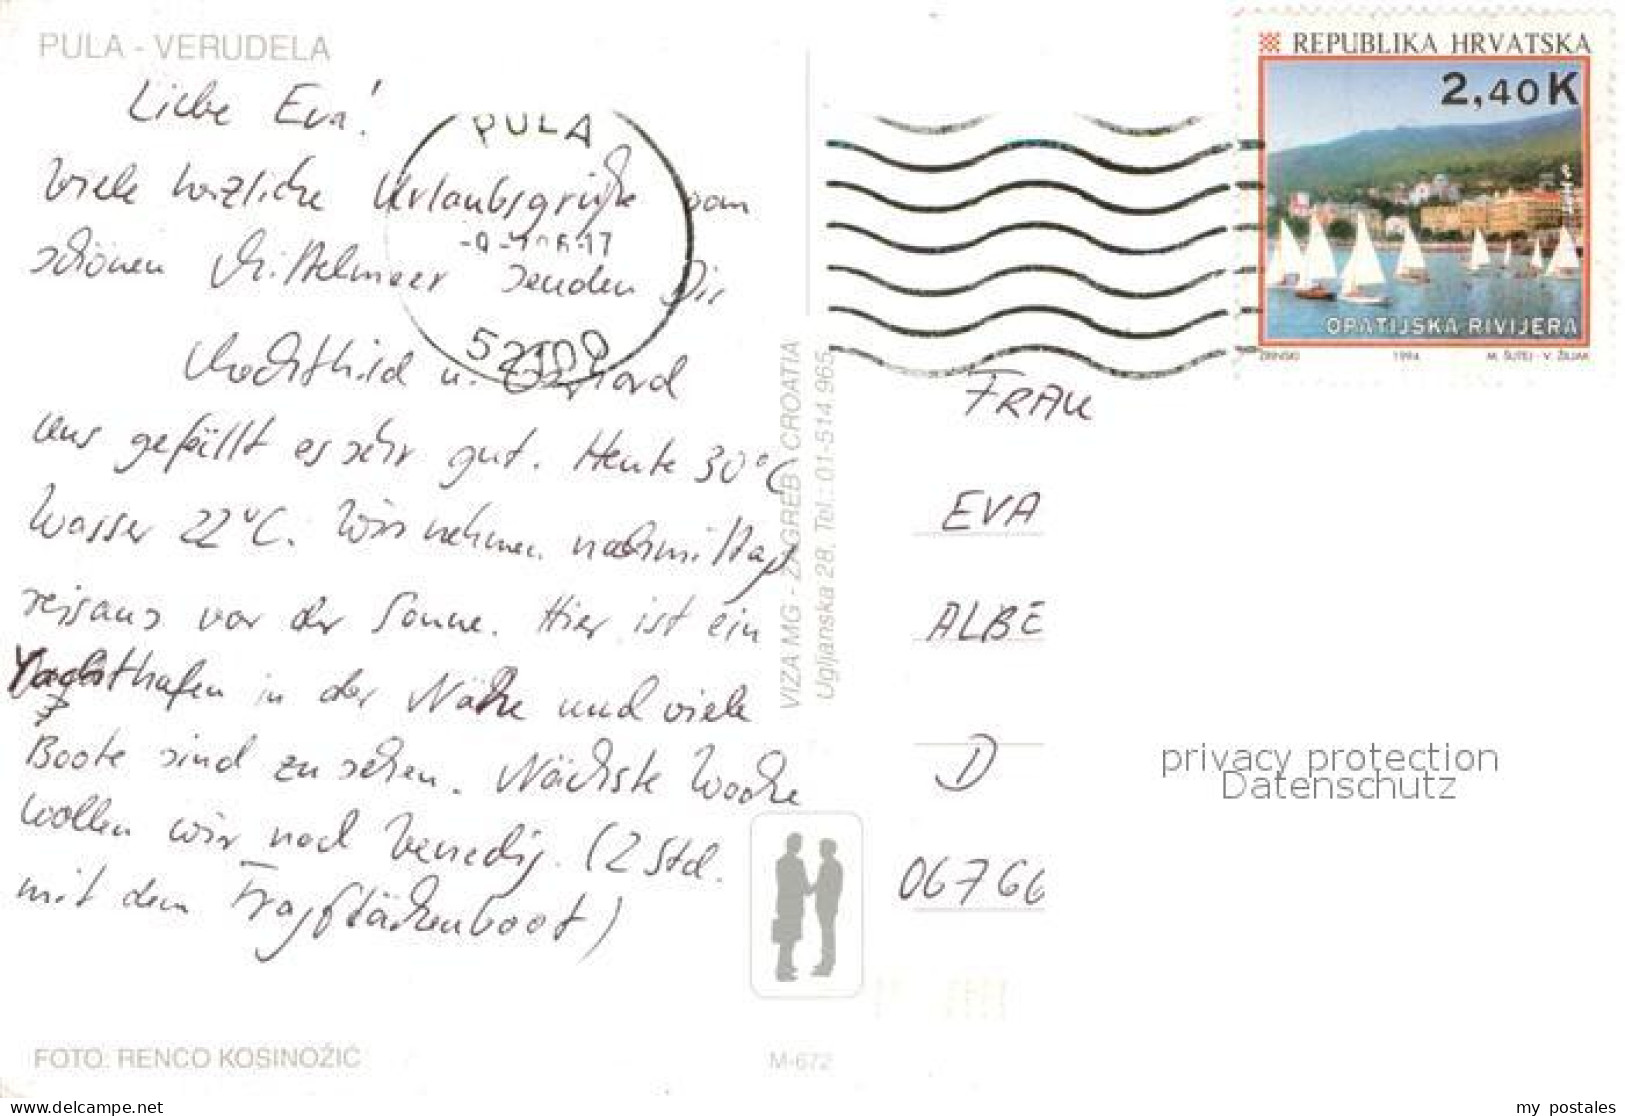 PULA - VERUDELA
Liebe Eva!
Viele herzliche Urlaubsgrüße vom
schönen Mittelmeer senden Dir
Mechthild u.
uns gefällt es sehr gut. Heute 30°C
Wasser 22°C. Wir nehmen nachmittags
reisaus vor der Sonne. Hier ist ein
Yachthafen in der Nähe und viele
Boote sind zu sehen. Nächste Woche
wollen wir nach Venedig. (2 Std.
mit dem Tragflächenboot)
FOTO: RENCO KOSINOŽIĆ
PULA
52100
VIZA MG - ZAGREB - CROATIA
Ugljanska 28, Tel.: 01-514 965
M-672
REPUBLIKA HRVATSKA
2,40 K
OPATIJSKA RIVIJERA
ZRINSKI 1994. M. ŠUTEJ - V. ŽILJAK
FRAU
EVA
ALBE
D
06766
privacy protection
Datenschutz
delcampe.net
my_postales